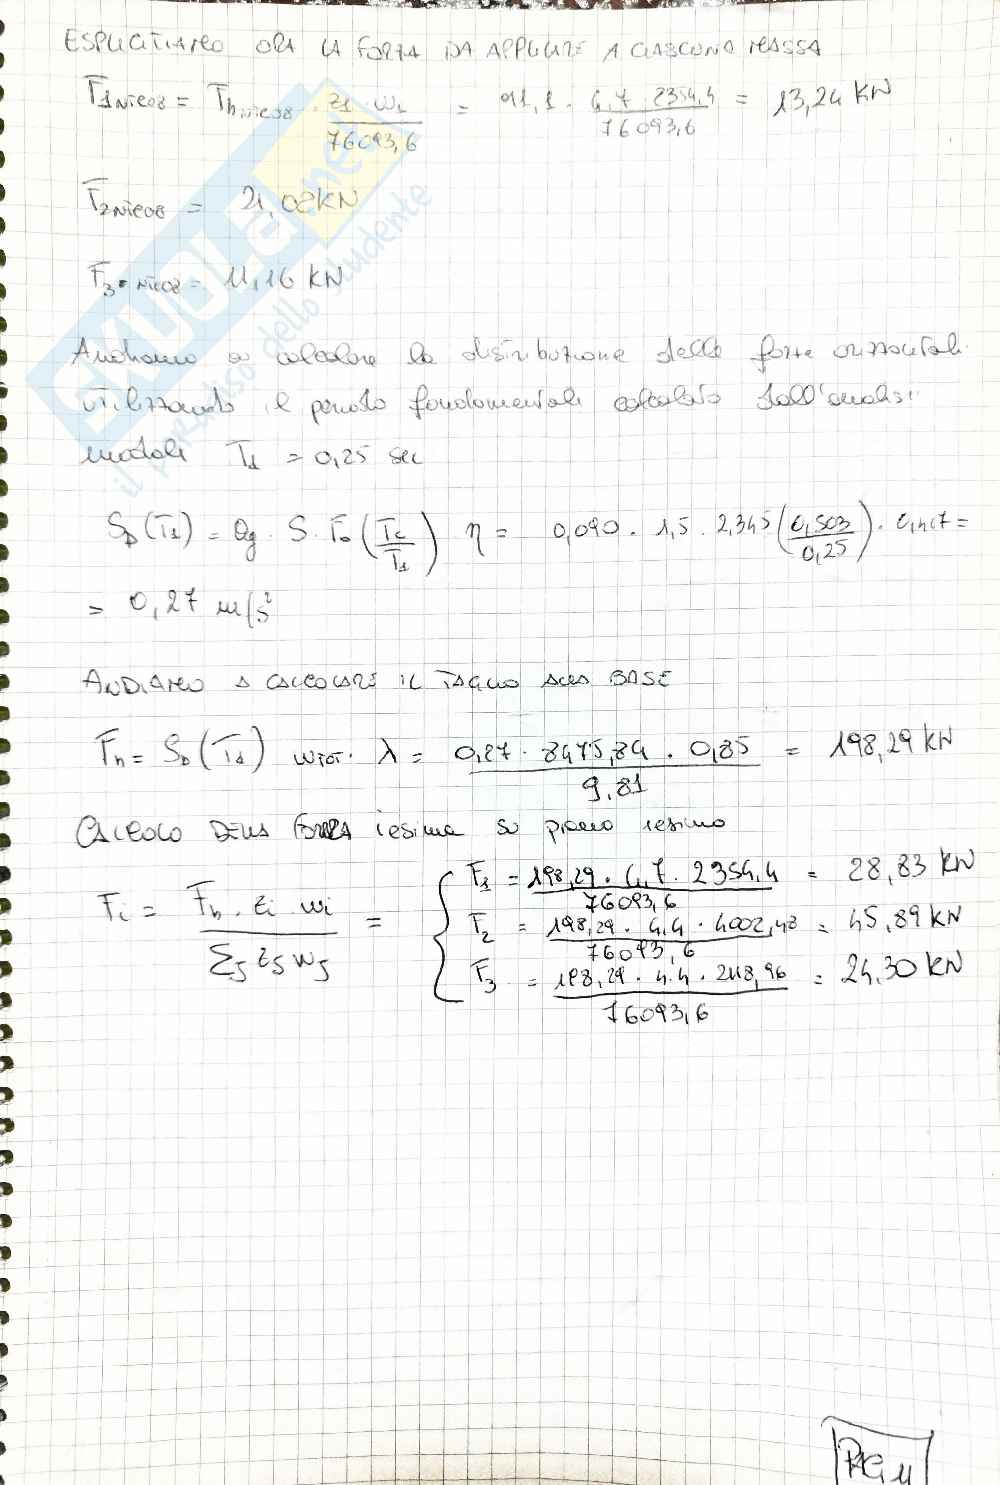 ESPLICITIAMO ORA LA FORZA DA APPLICARE A CIASCUNO MASSA
F1 NTC08 = Fh NTC08 · z1 · w1 / 76093,6 = 91,1 · 4,7 · 2354,4 / 76093,6 = 13,24 KN
F2 NTC08 = 21,08 KN
F3 NTC08 = 11,16 KN
Andiamo a calcolare la distribuzione delle forze orizzontali
utilizzando il periodo fondamentale calcolato dall'analisi
modale T1 = 0,25 sec
SD(T1) = ag · S · Fo (Tc / T1) η = 0,090 · 1,5 · 2,345 (0,503 / 0,25) · =
= 0,27 m/s²
ANDIAMO A CALCOLARE IL TAGLIO ALLA BASE
Fh = SD(T1) WTOT · λ = 0,27 · 8475,84 · 0,85 / 9,81 = 198,29 KN
CALCOLO DELLA FORZA iesima su piano iesimo
Fi = Fh · zi · wi / Σj zj wj =
F1 = 198,29 · 4,7 · 2354,4 / 76093,6 = 28,83 KN
F2 = 198,29 · 4,4 · 4002,48 / 76093,6 = 45,89 KN
F3 = 198,29 · 4.4 · 2118,96 / 76093,6 = 24,30 KN
PAG 11
SKUOLA.net
il paradiso dello studente